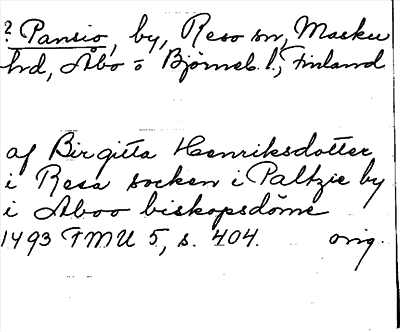 ? Pansio, by, Reso sn, Masku
hd, Åbo o Björneb. l., Finland
af Birgitta Henriksdotter
i Resa socken i Paltzie by
i Aboo biskopsdöme
1493 FMU 5, s. 404. orig.